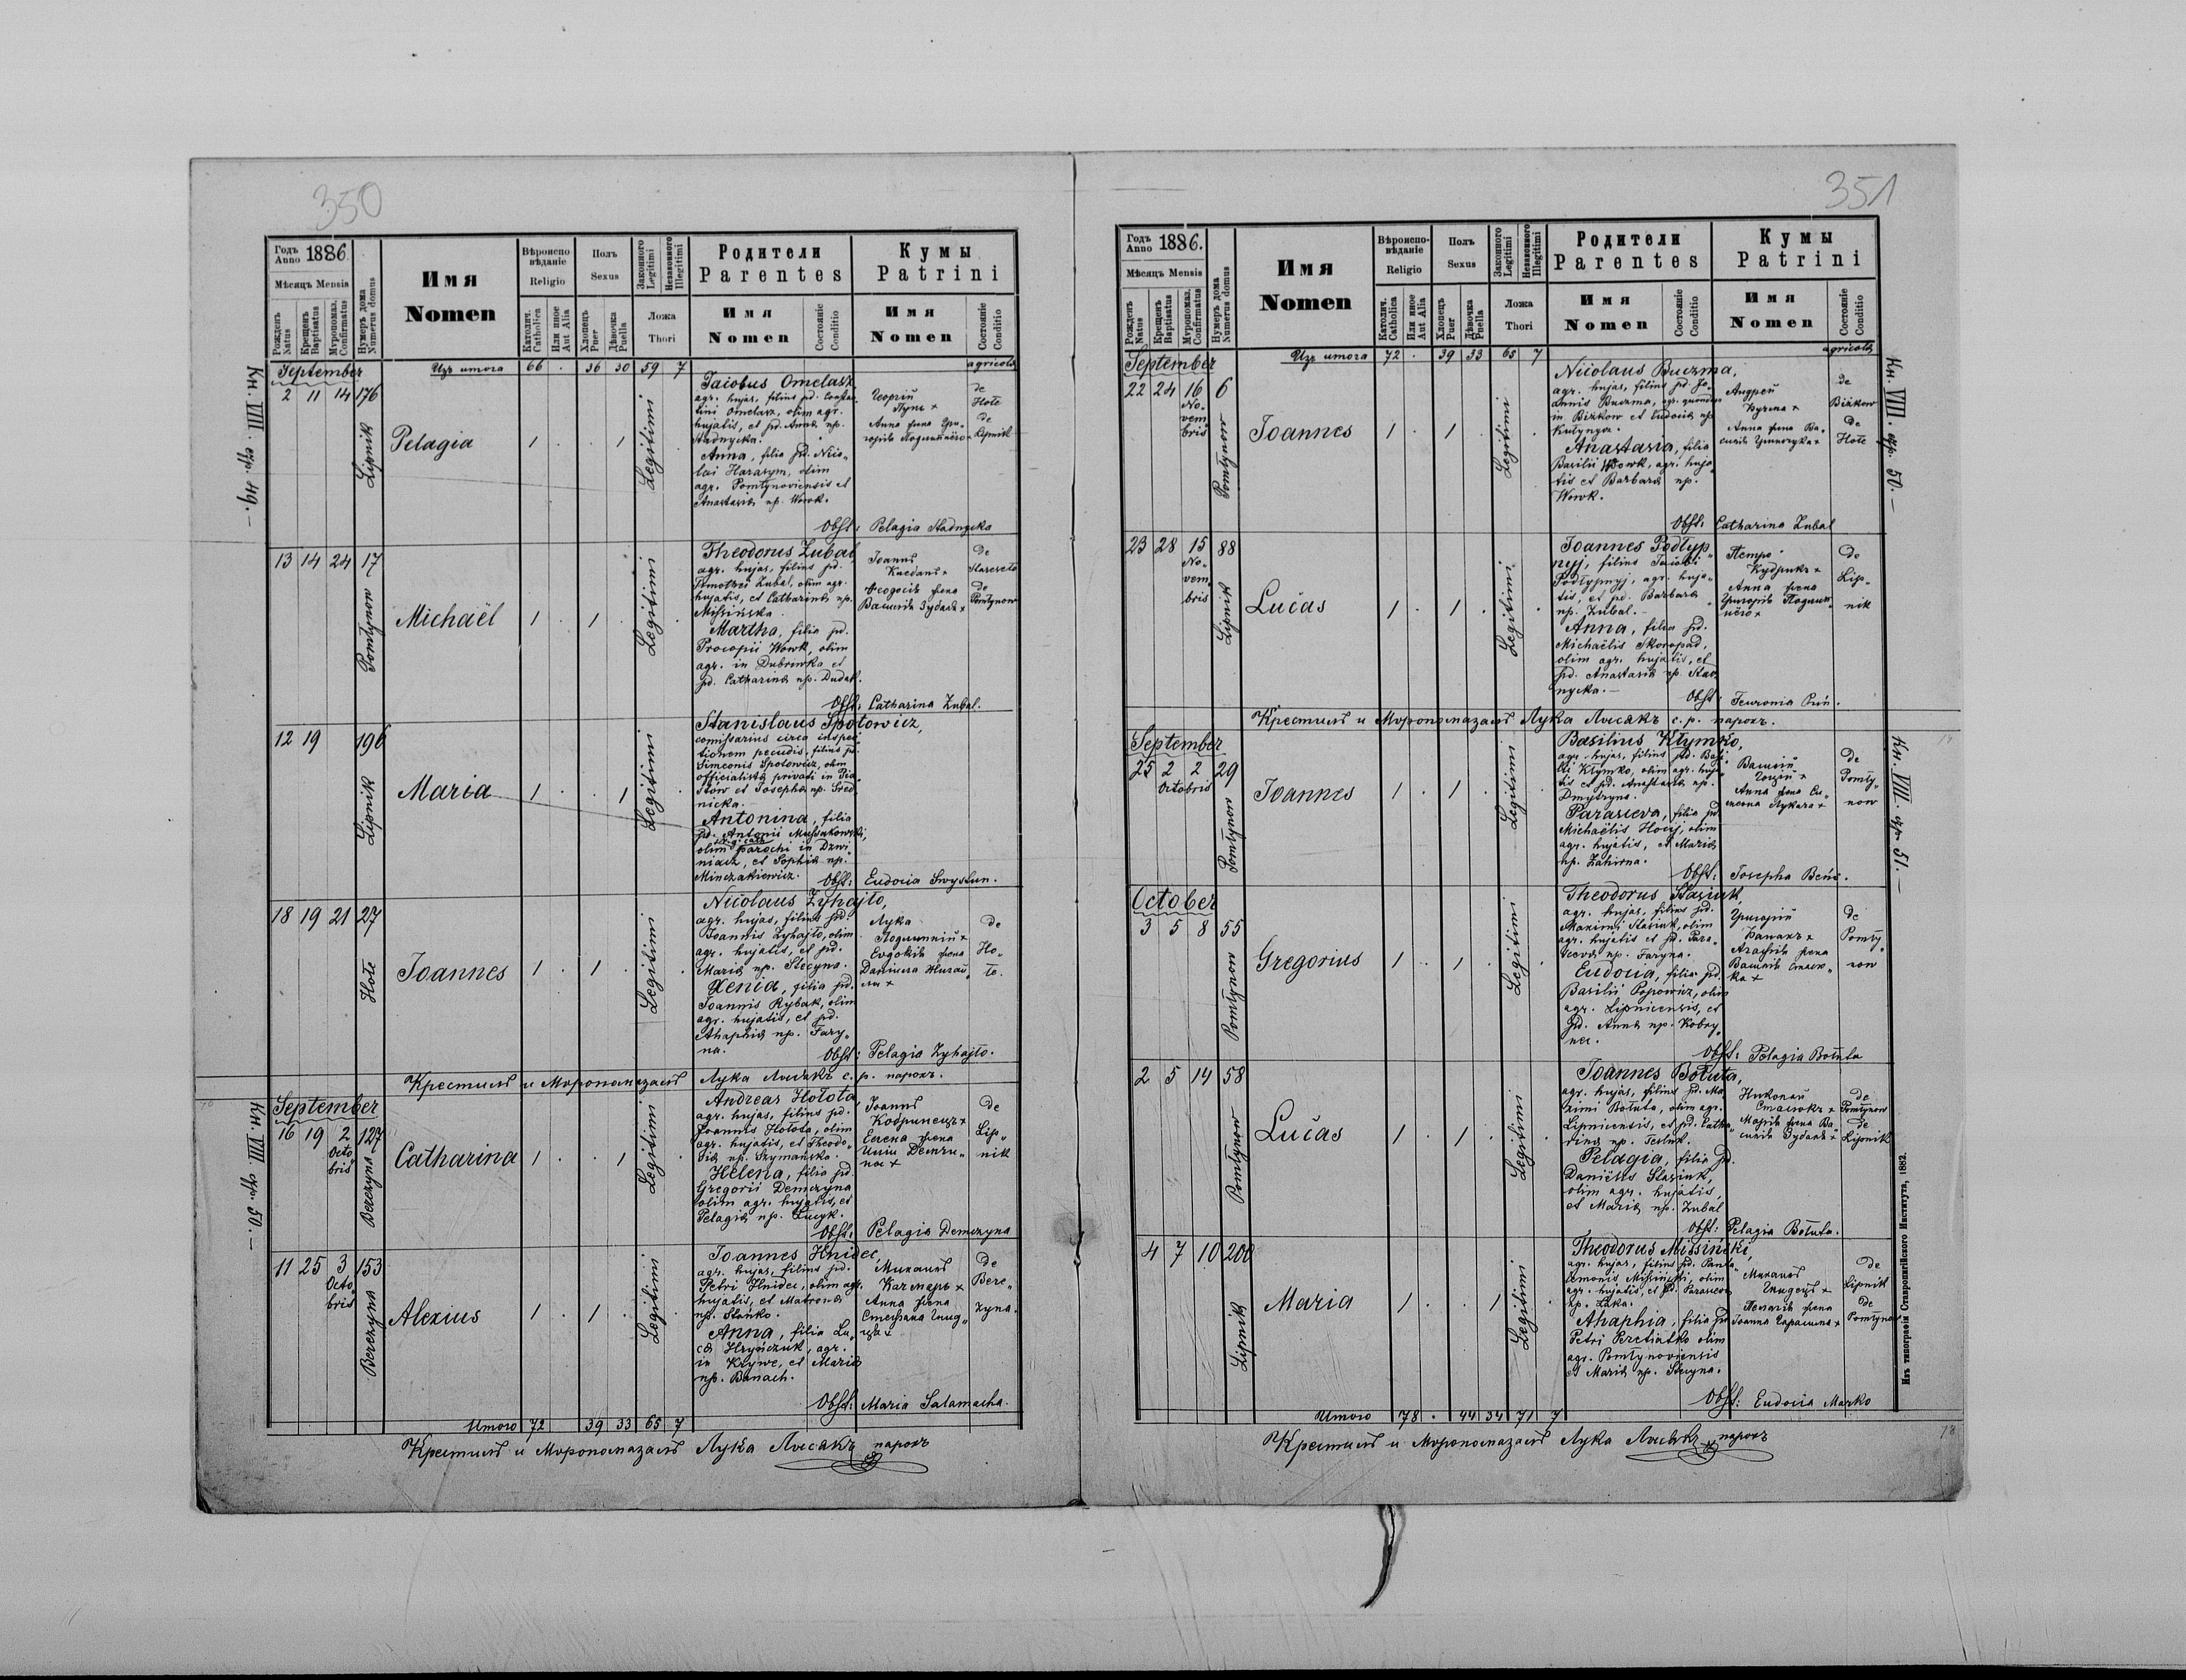 350
Годъ Anno 1886.
Мѣсяцъ Mensis
Рожденъ Natus
Крещенъ Baptisatus
Муропомаз. Confirmatus
Нумеръ дома Numerus domus
Имя Nomen
Вѣроиспо вѣданіе Religio
Католич. Catholica
Или иное Aut Alia
Полъ Sexus
Хлопецъ Puer
Дѣвочка Puella
Законного Legitimi
Незаконного Illegitimi
Ложа Thori
Родители Parentes
Имя Nomen
Состояніе Conditio
Кумы Patrini
Имя Nomen
Состояніе Conditio
Кн. VIII. стр. 49. —
September Изъ итога 66 . 36 30 59 7 agricolæ
2 11 14 176
Lipnik
Pelagia
1 . . 1
Legitimi
Jacobus Omelasz
agr. hujas, filius pd. Constan„
tini Omelasz, olim agr.
hujatis, et pd. Annæ np.
Stadnycka.
Anna, filia pd. Nico„
lai Harasym, olim
agr. Pomłynoviensis et
Anastasiæ np. Wowk.
Георгій
de
Hołe
Анна жена Гри„
de
Lipnik
Obst: Pelagia Stadnycka
13 14 24 17
Pomłynow
Michaël
1 . 1 .
Legitimi
Theodorus Zubal,
agr. hujas, filius pd.
Timothei Zubal, olim agr.
hujatis, et Catharinæ np.
Missińska.
Martha, filia pd.
Procopii Wowk, olim
agr. in Dubrowka et
pd. Catharinæ np. Dudak.
Іоаннъ
de
Ѳеодосія жена
Василія Зубаль +
de
Pomłynow
Obst: Catharina Zubal.
12 19 196
Lipnik
Maria
1 . . 1
Legitimi
Stanislaus Spotowicz,
comissarius circa inspec
tionem pecudis, filius pd.
Simeonis Spotowicz, olim
officialistæ privati in Pia„
Antonina, filia
pd. Antonii
olim parochi in Dzwi„
niacz, et Sophiæ np.
Minczakiewicz.
Obst: Eudocia Swystun.
18 19 21 27
Hołe
Joannes
1 . 1 .
Legitimi
Nicolaus Zyhajło,
agr. hujas, filius pd.
Joannis Zyhajło, olim
agr. hujatis, et pd.
Mariæ np. Stecyna.
Xenia, filia pd.
Joannis Rybak, olim
agr. hujatis, et pd.
Ahaphiæ np. Fary„
na.
Лука
de
Евдокія жена
Ho„
łe.
Obst: Pelagia Zyhajło.
Крестилъ и Муропомазалъ Лука Лисякъ с. р. парохъ.
Кн. VIII. стр. 50. —
September
16 19 2 Octo bris 127
Berezyna
Catharina
1 . . 1
Legitimi
Andreas Hołota,
agr. hujas, filius pd.
Joannis Hołota, olim
agr. hujatis, et Theodo„
siæ np. Szymańska.
Helena, filia pd.
Gregorii Demczyna
olim agr. hujatis, et
Pelagiæ np. Lucyk.
Іоаннъ
Кобринецъ +
de
Елена жена
Lip„
nik
Obst: Pelagia Demczyna
11 25 3 Octo bris 153
Berezyna
Alexius
1 . 1 .
Legitimi
Joannes Hnidec,
agr. hujas, filius pd.
Petri Hnidec, olim agr.
hujatis, et Matronæ
np. Stańko.
Anna, filia Lu„
cæ Hryńczuk, agr.
in Krzywe, et Mariæ
np. Banach.
Михаилъ
Качмаръ +
de
Bere„
zyna.
Анна жена
Стефана Гнид„
Obst: Maria Salamacha.
Итого 72 39 33 65 7
Крестилъ и Муропомазалъ Лука Лисякъ парохъ
351
Годъ Anno 1886.
Мѣсяцъ Mensis
Рожденъ Natus
Крещенъ Baptisatus
Муропомаз. Confirmatus
Нумеръ дома Numerus domus
Имя Nomen
Вѣроиспо- вѣданіе Religio
Католич. Catholica
Или иное Aut Alia
Полъ Sexus
Хлопецъ Puer
Дѣвочка Puella
Законного Legitimi
Незаконного Illegitimi
Ложа Thori
Родители Parentes
Имя Nomen
Состояніе Conditio
Кумы Patrini
Имя Nomen
Состояніе Conditio
Кн. VIII. стр. 50. —
September Изъ итога 72 . 39 33 65 7 agricolæ
22 24 16 No„ vem„ bris 6
Pomłynow
Joannes
1 . 1 .
Legitimi
Nicolaus Buczma,
agr. hujas, filius pd. Jo„
annis Buczma, agr. quondam
in Bizkow et Eudociæ np.
Anastasia, filia
Basilii Wowk, agr. huja„
tis et Barbaræ np.
Wowk.
Андрей
Бучма +
de
Bizkow
Анна жена Ва„
de
Hołe
Obst: Catharina Zubal
23 28 15 No„ vem„ bris 88
Lipnik
Lucas
1 . 1 .
Legitimi
Joannes Podłyp„
nyj, filius Jacobi
Podłypnyj, agr. huja„
tis, et pd. Barbaræ
np. Zubal. —
Anna, filia pd.
Michaëlis Skoropad,
olim agr. hujatis, et
pd. Anastasiæ np. Stad„
nycka. —
Петро
Кудрикъ +
de
Lip„
nik
Анна жена
Григорія Подлип„
Obst:
Крестилъ и Муропомазалъ Лука Лисякъ с. р. парохъ.
Кн. VIII. стр. 51. —
September
25 2 2 Octobris 29
Pomłynow
Joannes
1 . 1 .
Legitimi
Basilius Kłymko,
agr. hujas, filius pd. Basi„
lii Kłymko, olim agr. huja„
tis et pd. Anastasiæ np.
Dmytryna.
Parasceva, filia pd.
Michaëlis Hocij, olim
agr. hujatis, et Mariæ
np. Zahirna.
Василій
de
Pomły„
now
Анна жена Си„
Obst: Josepha Beńo.
October
3 5 8 55
Pomłynow
Gregorius
1 . 1 .
Legitimi
Theodorus Stasiuk,
agr. hujas, filius pd.
Maximi Stasiuk, olim
agr. hujatis et pd. Para„
scevæ np. Faryna.
Eudocia, filia pd.
Basilii Popowicz, olim
agr. Lipnicensis, et
pd. Annæ np. Kobry„
nec.
Григорій
Банахъ +
de
Pomły„
now
Агафія жена
Obst: Pelagia Bołuta
2 5 14 58
Pomłynow
Lucas
1 . 1 .
Legitimi
Joannes Bołuta,
agr. hujas, filius pd. Ma„
ximi Bołuta, olim agr.
Lipnicensis, et pd. Catha„
rinæ np. Tesluk.
Pelagia, filia pd.
Daniëlis Stasiuk,
olim agr. hujatis,
et Mariæ np. Zubal
Николай
Стасюкъ +
de
Pomłynow
Марія жена Ва„
силія Зубаль +
de
Lipnik
Obst: Pelagia Bołuta.
4 7 10 200
Lipnik
Maria
1 . . 1
Legitimi
Theodorus Missiński,
agr. hujas, filius pd. Panta„
lemonis Missiński, olim
agr. hujatis, et pd. Parascevæ
Ahaphia, filia pd.
Petri Peretiatko olim
agr. Pomłynoviensis
et Mariæ np. Stecyna.
Михаилъ
Гнидецъ +
de
Lipnik
Пелагія жена
Іоанна Гарасима +
de
Pomłynow
Obst: Eudocia Marko
Итого 78 . 44 34 71 7
Крестилъ и Муропомазалъ Лука Лисякъ парохъ
Изъ типографіи Ставропигійского Института, 1882.